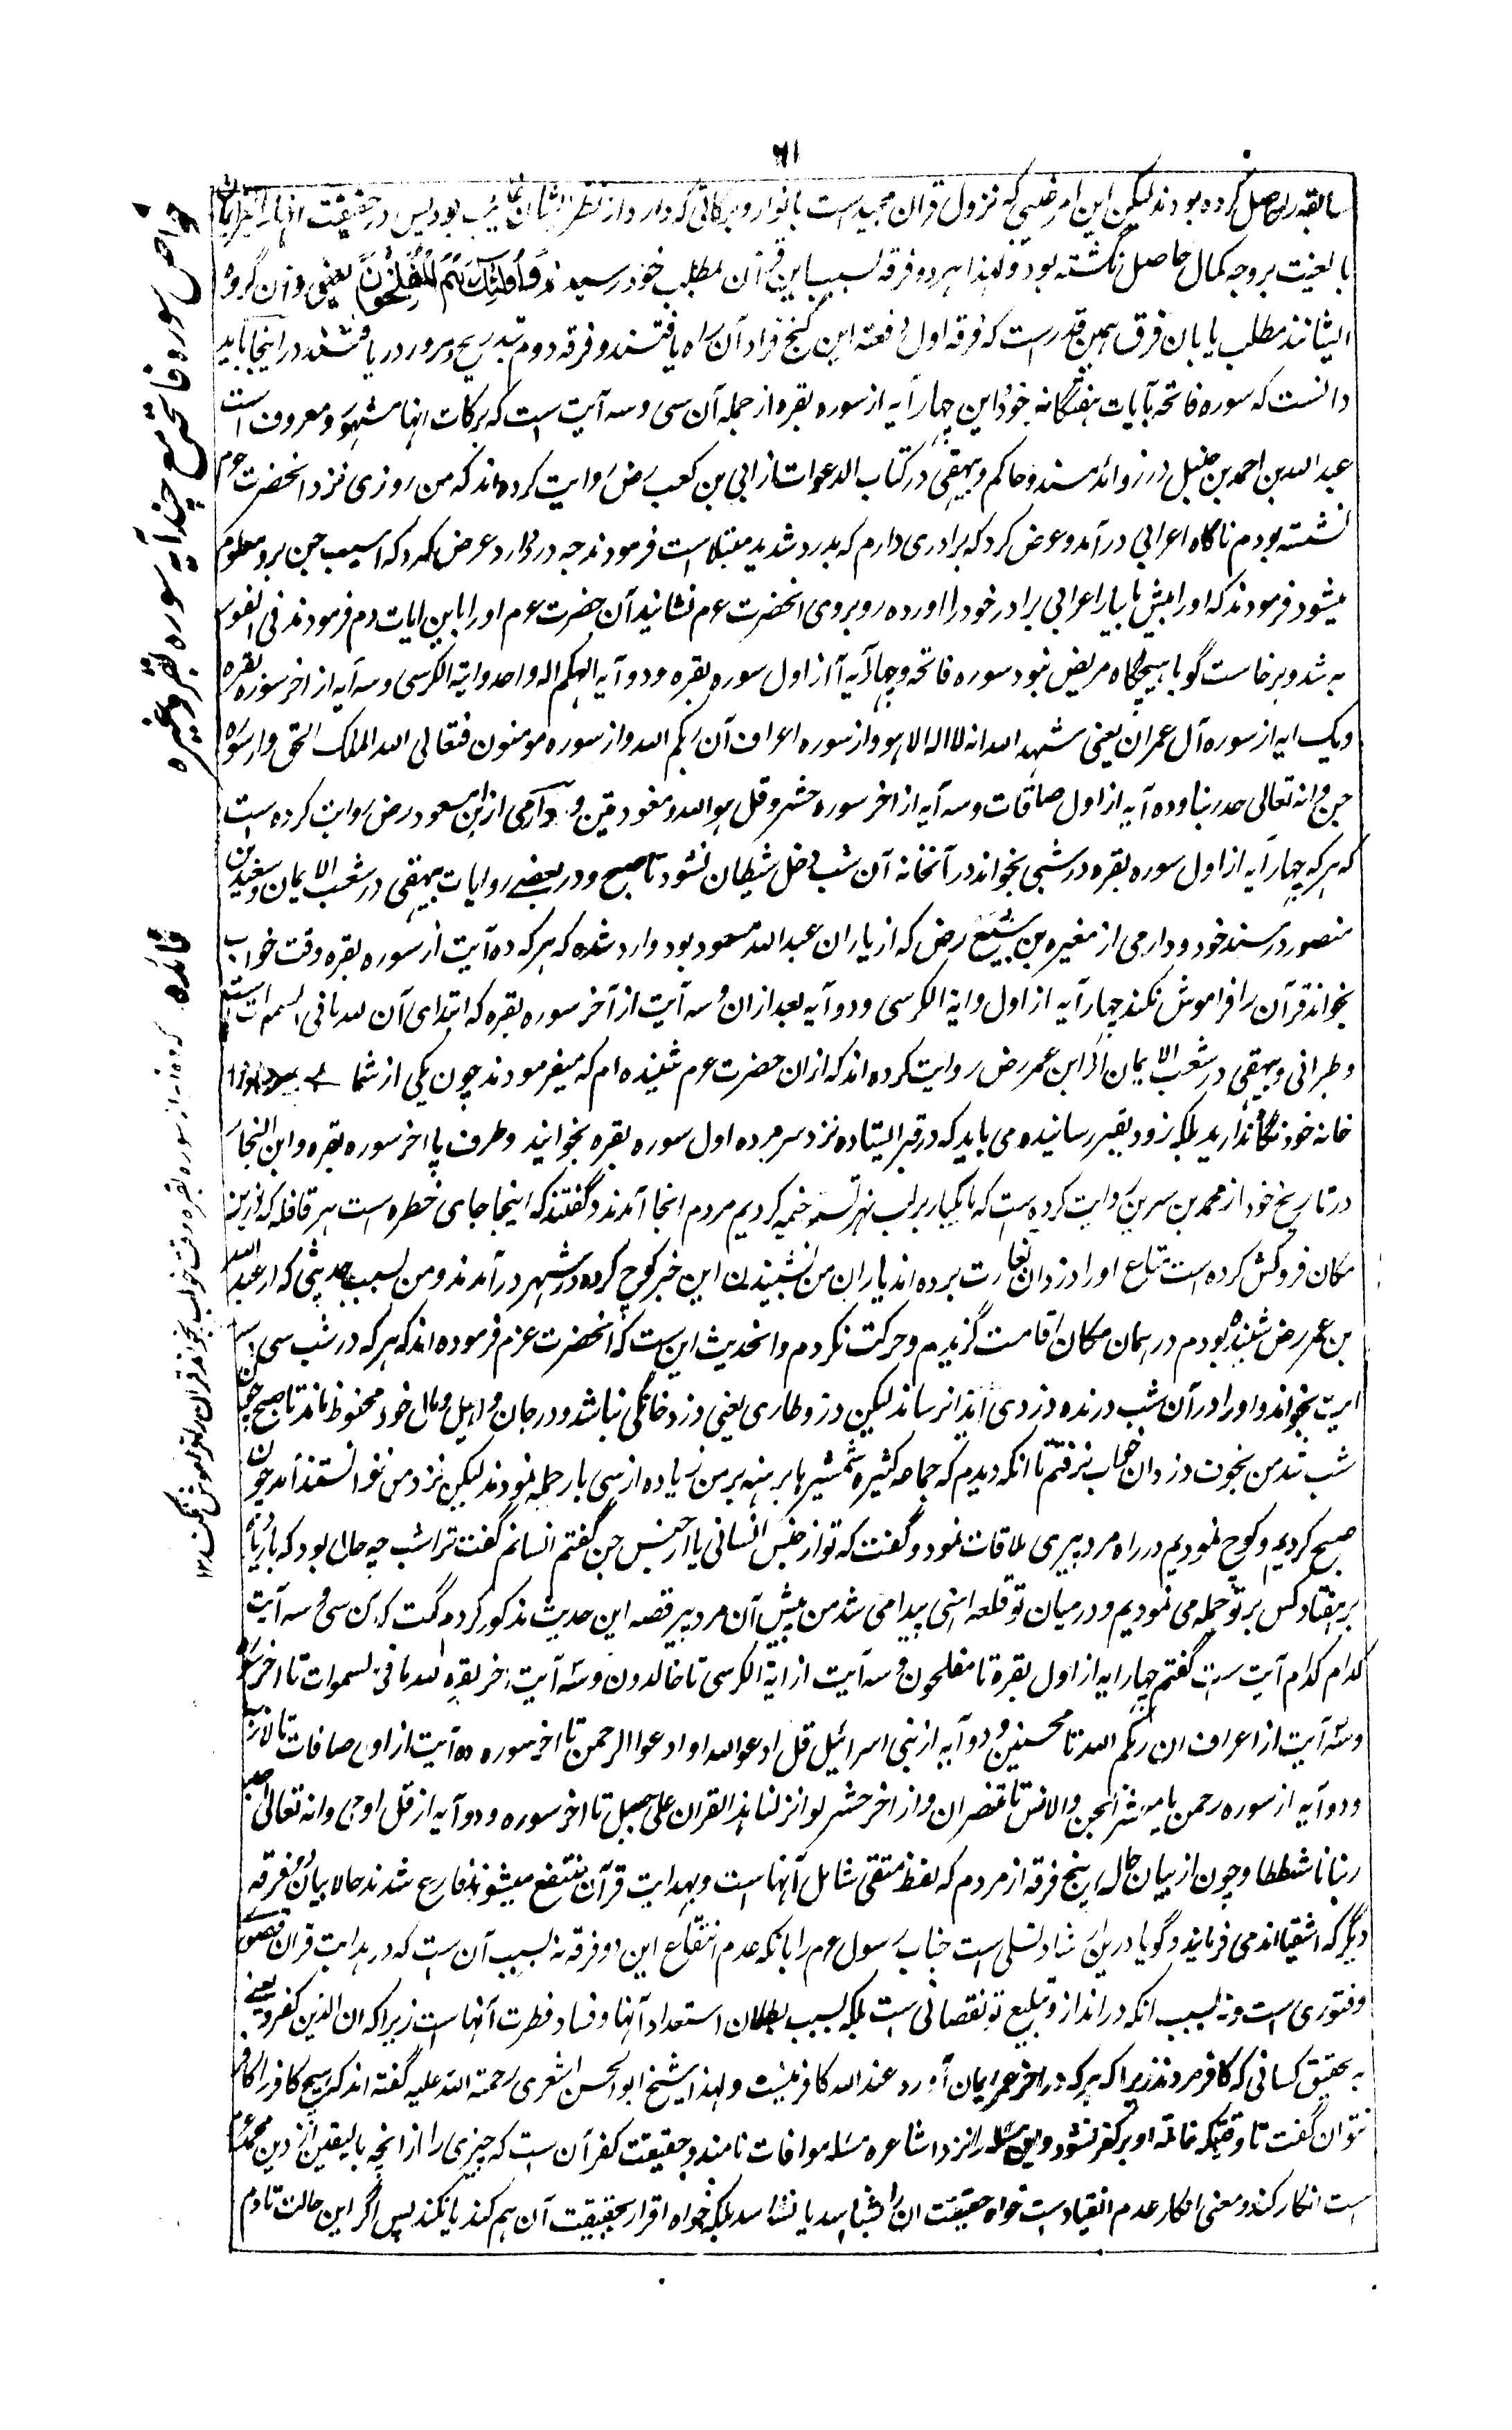 ٦١
سابقه را حاصل کرده بودند لیکن این امر غیبی که نزول قران مجید است با انوار و برکاتی که دارد از نظر ایشان غایب بود پس در حقیقت انها را ایمان
بالغیب بر وجه کمال حاصل نگشته بود و لهذا هر دو فرقه بسبب این قرآن بمطلب خود رسیدند وَاُولٰئِکَ هُمُ الْمُفْلِحُوْنَ یعنی و آن گروه
ایشانند مطلب یابان فرق همین قدر است که فرقه اول دفعة این گنج فراد آن راه یافتند و فرقه دوم بتدریج و مرور دریافتند در اینجا باید
دانست که سوره فاتحه بآیات هفتگانه خود و این چهار آیه از سوره بقره از جمله آن سی و سه آیت است که برکات انها مشهور و معروف است
عبد الله بن احمد بن حنبل در زوائد مسند و حاکم و بیهقی در کتاب الدعوات از ابی بن کعب رض روایت کرده اند که من روزی نزد انحضرت عم
نشسته بودم ناگاه اعرابی در آمد و عرض کرد که برادری دارم که بدرد شدید مبتلا است فرمودند چه درد دارد عرض کرد که اسیب جن برو معلوم
میشود فرمودند که او را پیش ما بیار اعرابی برادر خود را اورده روبروی انحضرت عم نشانید آن حضرت عم او را باین ایات دم فرمودند فی الفور
به شد و برخاست گویا هیچگاه مریض نبود سوره فاتحه و چهار آیه از اول سوره بقره و دو آیه الهکم اله واحد و ایة الکرسی و سه آیه از اخر سوره بقره
و یک ایه از سوره آل عمران یعنی شهد الله انه لا اله الا هو و از سوره اعراف ان ربکم الله و از سوره مومنون فتعالی الله الملک الحق و از سوره
جن و انه تعالی جد ربنا و ده آیه از اول صافات و سه آیه از اخر سوره حشر و قل هو الله و معوذتین و دارمی از ابن مسعود رض روایت کرده است
که هر که چهار آیه از اول سوره بقره در شبی بخواند در آنخانه آن شب دخل شیطان نشود تا صبح و در بعضے روایات بیهقی در شعب الایمان و سعید بن
منصور در سند خود و دارمی از مغیره بن سبیع رض که از یاران عبد الله مسعود بود وارد شده که هر که ده آیت از سوره بقره وقت خواب
بخواند قرآن را فراموش نکند چهار آیه از اول و ایة الکرسی و دو آیه بعد از ان و سه آیت از آخر سوره بقره که ابتدای آن لله ما فی السموات است
و طبرانی و بیهقی در شعب الایمان از ابن عمر رض روایت کرده اند که از ان حضرت عم شنیده ام که میفرمودند چون یکی از شما بمیرد او را
خانه خود نگاه ندارید بلکه زود بقبر رسانیده می باید که در قبر ایستاده نزد سر مرده اول سوره بقره بخوانید و طرف پا اخر سوره بقره و ابن النجار
در تاریخ خود از محمد بن سرین روایت کرده است که ما یکبار بر لب نهر تستر خیمه کردیم مردم انجا آمدند و گفتند که اینجا جای خطره است هر قافله که ازین
مکان فروکش کرده است متاع او را دزدان بغارت برده اند یاران من بشنیدن این خبر کوچ کرده در شهر درآمدند و من بسبب حدیثی که از عبد الله
بن عمر رض شنیده بودم در همان مکان اقامت گزیدم و حرکت نکردم و انحدیث این است که انحضرت عم فرموده اند که هر که در شب سی و سه
ایت بخواند او را در آن شب درنده و دزدی ایذا نرساند لیکن دزد طراری یعنی دزد خانگی نباشد و در جان و اهل و مال خود محفوظ ماند تا صبح چون
شب شد من بخوف دزدان بخواب نرفتم تا آنکه دیدم که جماعه کثیره شمشیرها برهنه بر من زیاده از سی بار حمله نمودند لیکن نزد من نتوانستند آمد چون
صبح کردیم و کوچ نمودیم در راه مرد پیری ملاقات نمود و گفت که تو از جنس انسانی یا از جنس جن گفتم انسانم گفت ترا شب چه حال بود که بارها
هفتاد کس بر تو حمله می نمودیم و درمیان تو قلعه اهنی پیدا می شد من پیش آن مرد پیر قصه این حدیث مذکور کردم گفت که این سی و سه آیت
کدام کدام آیت است گفتم چهار ایه از اول بقره تا مفلحون و سه آیت از ایة الکرسی تا خالدون و سه آیت اخر بقره لله ما فی السموات تا اخر سوره
و سه آیت از اعراف ان ربکم الله تا محسنین و دو آیه از بنی اسرائیل قل ادعوا الله او ادعوا الرحمن تا اخر سوره ده آیت از اول صافات تا لازب
و دو آیه از سوره رحمن یا معشر الجن والانس تا تنتصران و از اخر حشر لو انزلنا هذا القران علی جبل تا اخر سوره و دو آیه از قل اوحی و انه تعالی جد
ربنا تا شططا و چون از بیان حال این پنج فرقه از مردم که لفظ متقی شامل آنها است و بهدایت قرآن منتفع میشوند فارغ شدند حالا بیان دو فرقه
دیگر که اشقیا اند می فرمایند و گویا درین ارشاد تسلی است جناب رسول عم را بانکه عدم انتفاع این دو فرقه نه بسبب آن است که در هدایت قران قصور
و فتوری است و نه بسبب انکه در انذار و تبلیغ تو نقصانی است بلکه بسبب بطلان استعداد آنها و فساد فطرت آنها است زیرا که ان الذین کفروا یعنے
به تحقیق کسانی که کافر مردند زیرا که هر که در اخر عمر ایمان آورد عند الله کافر نیست و لهذا شیخ ابو الحسن اشعری رحمته الله علیه گفته اند که هیچ کافر را کافر
نتوان گفت تا وقتیکه خاتمه او بر کفر نشود و این مسئله را نزد اشاعره مسئله موافات نامند و حقیقت کفر آن ست که چیزی را از انچه بالیقین از دین محمد عم
است انکار کند و معنی انکار عدم انقیاد است خواه حقیقت ان را شناسد یا نشناسد بلکه خواه اقرار بحقیقت آن هم کند یا نکند پس اگر این حالت تا دم
خواص سوره فاتحه مع چند آیه سوره بقره وغیره
فائده که ده ایه از سوره بقره وقت خواب بخواند قران را فراموش نکند ۱۲